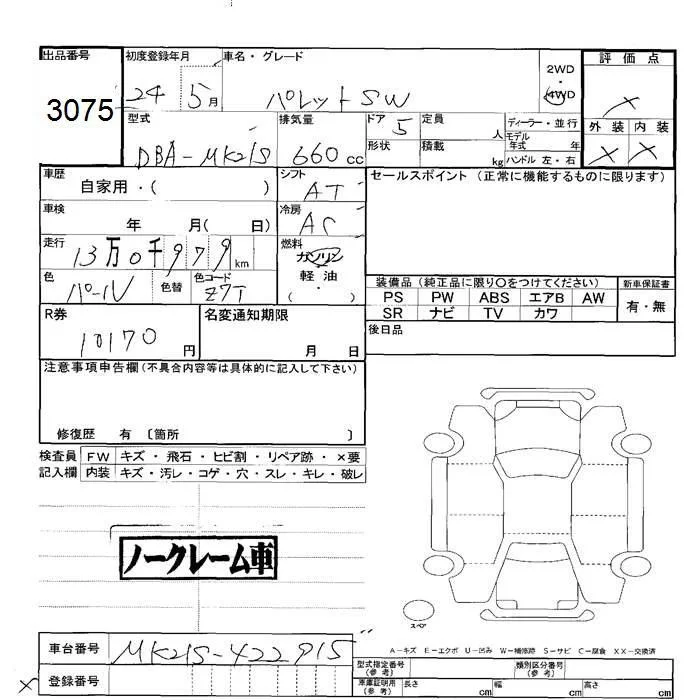 出品番号 初度登録年月 車名・グレード 2WD・4WD 評価点
3075 24 5月 パレットSW ×
型式 排気量 ドア 定員 ディーラー・並行 外装 内装
DBA-MK21S 660cc 5 人 モデル年式 年 × ×
形状 積載 kg ハンドル 左・右
車歴 シフト セールスポイント(正常に機能するものに限ります)
自家用・( ) AT
車検 冷房
年 月( 日) AC
走行 燃料
13万0千979km ガソリン
軽油
・( )
色 色替 色コード
パール Z7T
装備品(純正品に限り○をつけてください) 新車保証書
PS PW ABS エアB AW 有・無
SR ナビ TV カワ
R券 名変通知期限 後日品
10170円 月 日
注意事項申告欄(不具合内容等は具体的に記入して下さい)
修復歴 有 〔箇所 〕
検査員 FW キズ・飛石・ヒビ割・リペア跡・×要
記入欄 内装 キズ・汚レ・コゲ・穴・スレ・キレ・破レ
ノークレーム車
スペア
A-キズ E-エクボ U-凹み W-補修跡 S-サビ C-腐食 XX-交換済
車台番号 MK21S-422915
× 登録番号
型式指定番号(参考) 類別区分番号(参考)
車庫証明用(参考) 長さ cm 幅 cm 高さ cm